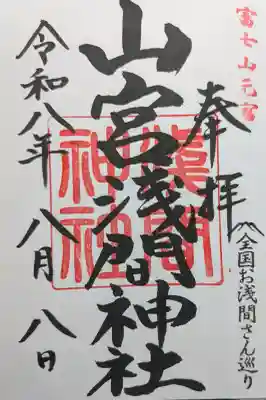 富士山元宮
奉拝
全国お浅間さん巡り
山宮浅間神社
浅間神社
令和八年 八月 八日